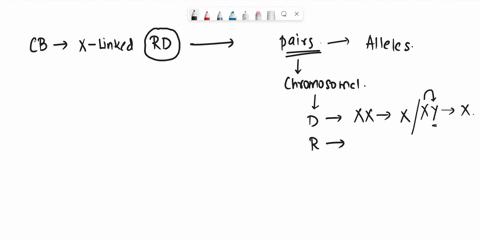 CB → X-Linked RD → pairs → Alleles.
↓
Chromosomel.
↓
D → XX → X / XY → X.
R →